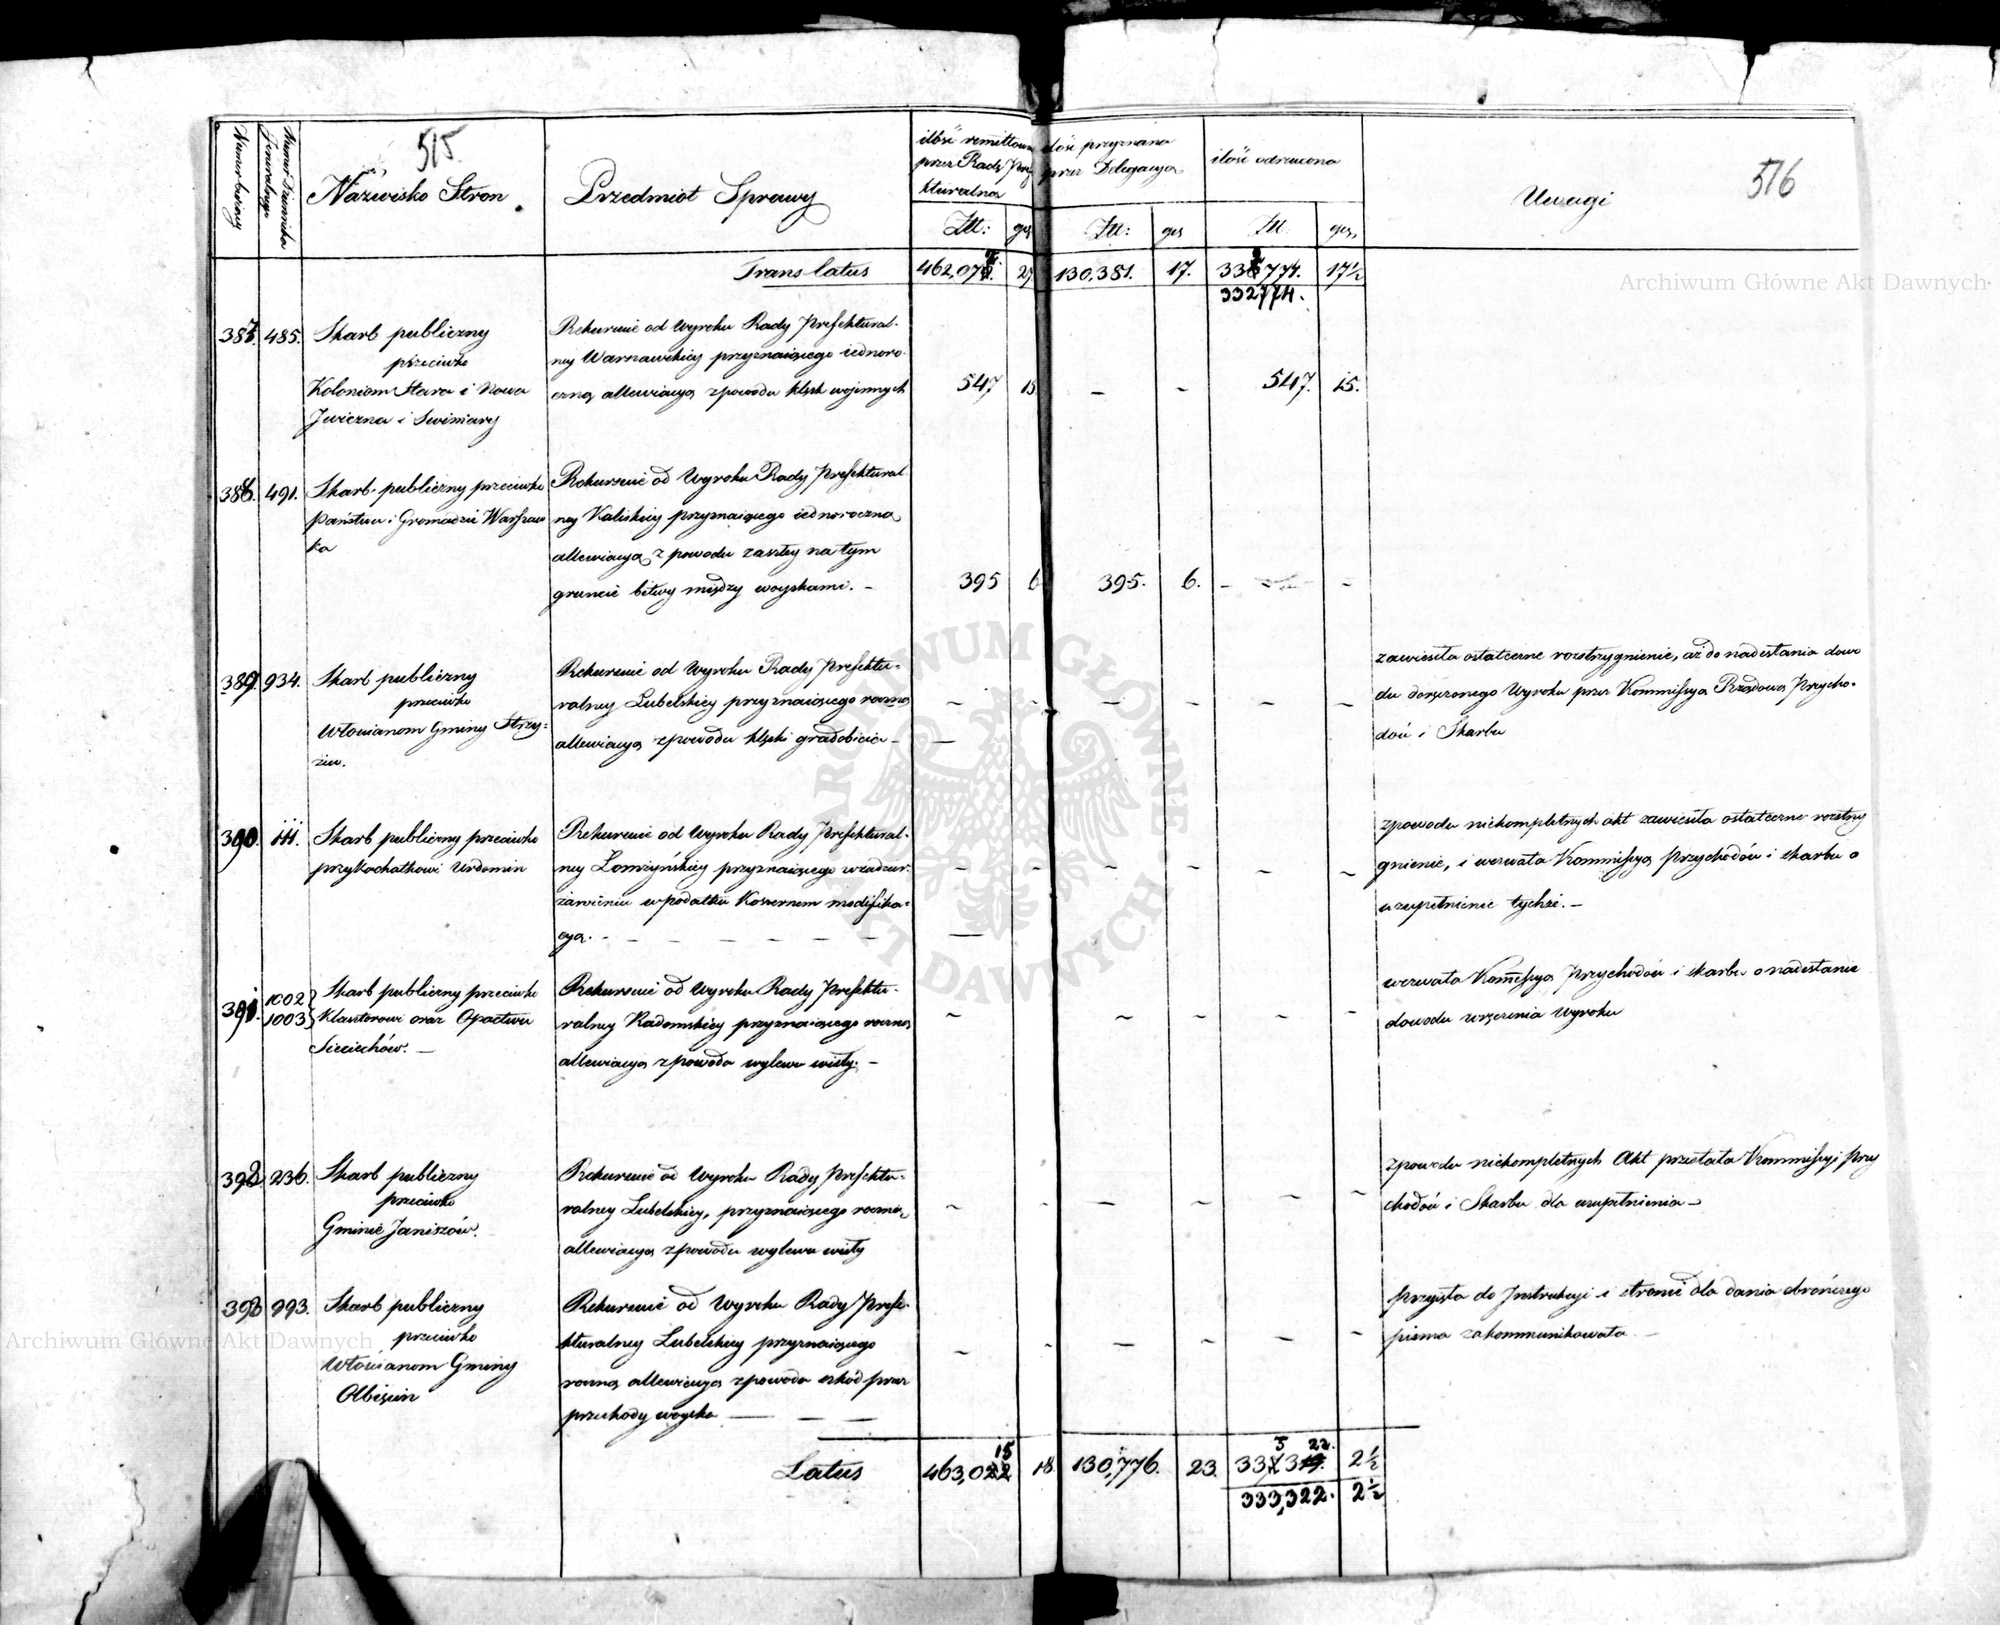 515
516
Numer bieżący
Numer Dziennika Jeneralnego
Nazwisko Stron
Przedmiot Sprawy
ilość remittowa
przez Radę Pref
kturalną
Złl: gr
ilość przyznana
przez Delegacyą
Złl: gr
ilość odrzucona
Złl. gr.
Uwagi
Translatus 462,07 27 130,381. 17. 332,774. 17½
332774.
387. 485. Skarb publiczny
przeciwko
Koloniom Stara i Nowa
Jwiczna i Swiniary
Rekursuie od Wyroku Rady Prefektural-
ney Warszawskiey przyznaiącego iednoro-
czną allewiacyą zpowodu klęsk woiennych
547 15 – – 547. 15.
388. 491. Skarb publiczny przeciwko
Państwu i Gromadzie Warszaw
ka
Rekursuie od Wyroku Rady Prefektural
ney Kaliskiey przyznaiącego iednoroczną
allewiacyą z powodu zaszłey na tym
gruncie bitwy między woyskami. –
395 6 395. 6. – –
389. 934. Skarb publiczny
przeciwko
Włościanom Gminy Strzy-
żiw.
Rekursuie od Wyroku Rady Prefektu-
ralney Lubelskiey przyznaiącego roczną
allewiacyą zpowodu klęski gradobicia –
zawiesiła ostateczne rozstrzygnienie, aż do nadesłania dowo
du doręczonego Wyroku przez Kommissyą Rządową Przycho-
dów i Skarbu
390. 111. Skarb publiczny przeciwko
przykochatkowi Urdomin
Rekursuie od Wyroku Rady Prefektural-
ney Łomżyńskiey przyznaiącego wzadzier-
żawieniu w podatku Koszernem modifika-
cyą. – – – – – –
zpowodu niekompletnych akt zawiesiła ostateczne rozstrzy
gnienie, i wezwała Kommissyą Przychodów i skarbu o
uzupełnienie tychże. –
391. 1002 1003 Skarb publiczny przeciwko
Klasztorowi oraz Opactwu
Sieciechów. –
Rekursuie od Wyroku Rady Prefektu-
ralney Radomskiey przyznaiącego roczną
allewiacyą zpowodu wylewu wisły. –
wezwała Kommissyą Przychodów i skarbu o nadesłanie
dowodu wręczenia wyroku
392. 236. Skarb publiczny
przeciwko
Gminie Janiszów.
Rekursuie od Wyroku Rady Prefektu-
ralney Lubelskiey, przyznaiącego roczną
allewiacyą zpowodu wylewu wisły
zpowodu niekompletnych Akt przesłała Kommissyi Przy
chodów i Skarbu dla uzupełnienia –
393 993. Skarb publiczny
przeciwko
Włościanom Gminy
Olbięcin
Rekursuie od Wyroku Rady Prefe-
kturalney Lubelskiey przyznaiącego
roczną allewiacyą zpowodu szkód przez
przechody woyska – – –
przyięła do Jnstrukcyi i stronie dla dania obrończego
pisma zakommunikowała –
Latus 463,015 18. 130,776. 23. 333,322. 2½
333,322. 2½
Archiwum Główne Akt Dawnych
Archiwum Główne Akt Dawnych
ARCHIWUM GŁÓWNE AKT DAWNYCH